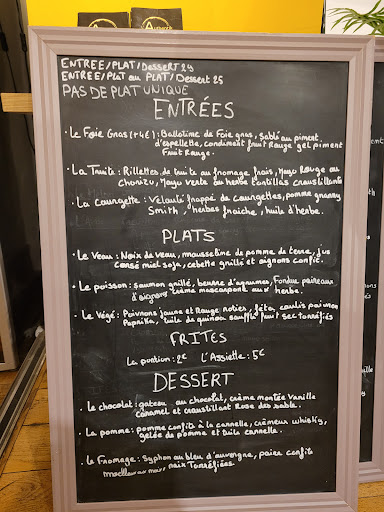 ENTREE/PLAT/Dessert 29
ENTREE/Plat ou PLAT/Dessert 25
PAS DE PLAT UNIQUE
ENTRÉES
• Le Foie Gras (+4€): Ballotine de Foie gras, sablé au piment
d'espelette, condiment fruit Rouge gel piment
Fruit Rouge.
• La Truite: Rillettes de truite au fromage frais, Mayo Rouge au
chorizo, Mayo verte au herbe tortillas croustillante
• La Courgette: Velouté frappé de courgettes, pomme granny
Smith, herbes fraiche, huile d'herbe.
PLATS
• Le Veau: Noix de veau, mousseline de pomme de terre, jus
corsé miel soja, cebette grillé et oignons confit.
• Le poisson: saumon grillé, beurre d'agrumes, Fondue poireaux
d'oignons crème mascarpone aux herbe.
• Le Végé: Poivrons jaune et Rouge roties, féta, coulis poivron
Paprika, tuile de quinoa soufflé fruit sec torréfiés
FRITES
La portion: 2€ L'Assiette: 5€
DESSERT
• Le chocolat: gateau au chocolat, crème montée Vanille
caramel et croustillant Rose des sable.
• La pomme: pomme confits à la cannelle, crémeux whisky,
gelée de pomme et tuile cannelle.
• Le Fromage: Syphon au bleu d'auvergne, poire confit
noix Torréfiées